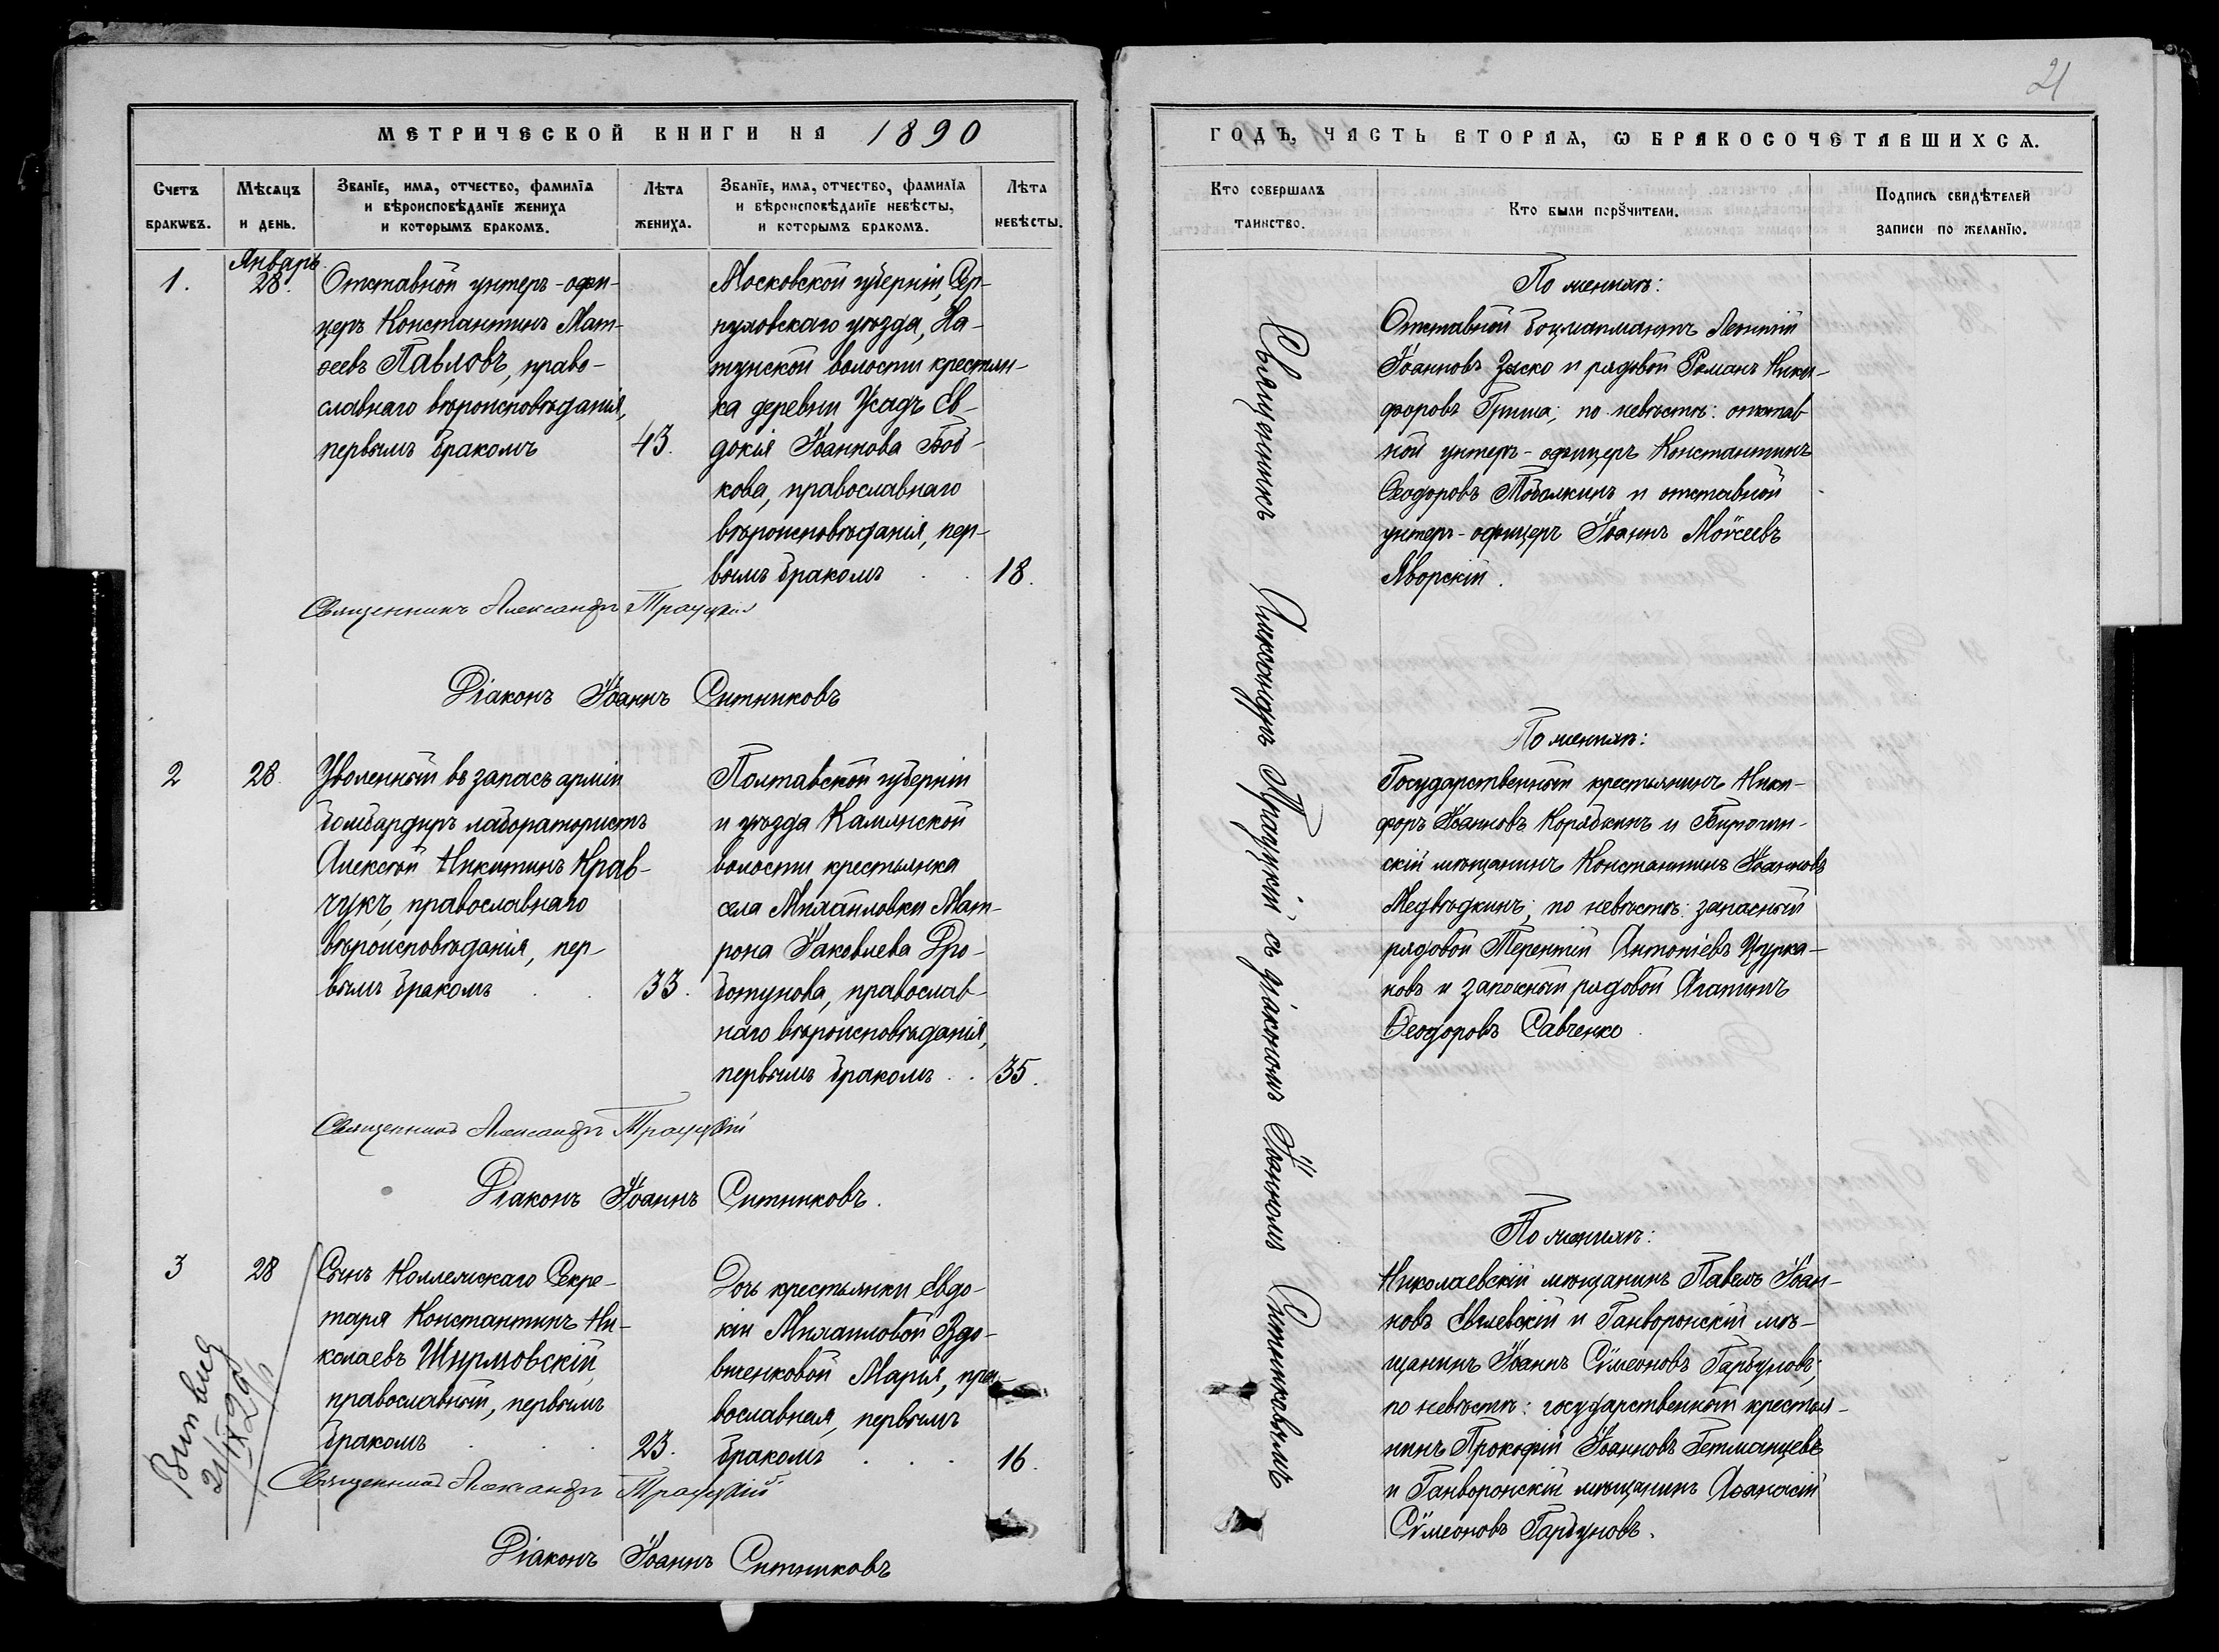 21
МЕТРИЧЕСКОЙ КНИГИ НА 1890
ГОДЪ, ЧАСТЬ ВТОРАЯ, Ѡ БРАКОСОЧЕТАВШИХСЯ.
Счетъ
бракѡвъ.
Мѣсяцъ
и день.
Званіе, имя, отчество, фамилія
и вѣроисповѣданіе жениха
и которымъ бракомъ.
Лѣта
жениха.
Званіе, имя, отчество, фамилія
и вѣроисповѣданіе невѣсты,
и которымъ бракомъ.
Лѣта
невѣсты.
Кто совершалъ
таинство.
Кто были порꙋчители.
Подпись свидѣтелей
записи по желанію.
Январь
1.
28.
Отставной унтеръ-офи-
церъ Константинъ Мат-
ѳеевъ Павловъ, право-
славнаго вѣроисповѣданія,
первымъ бракомъ
43.
Московской губерніи, Сер-
пуховскаго уѣзда, Ха-
тунской волости крестьян-
ка деревни Усадъ Ев-
докія Іоаннова Боб-
кова, православнаго
вѣроисповѣданія, пер-
вымъ бракомъ
18.
Священникъ Александръ Трауцкій
Діаконъ Іоаннъ Ситниковъ
По женихѣ:
Отставной боцманматъ Леонтій
Іоанновъ Зыско и рядовой Романъ Ники-
форовъ Гриша; по невѣстѣ: отстав
ной унтеръ-офицеръ Константинъ
Ѳеодоровъ Тоболкинъ и отставной
унтеръ-офицеръ Іоаннъ Моѵсеевъ
Яворскій.
2
28.
Уволенный въ запасъ арміи
бомбардиръ лаборатористъ
Алексѣй Никитинъ Крав-
чукъ, православнаго
вѣроисповѣданія, пер-
вымъ бракомъ
33.
Полтавской губерніи
и уѣзда Камянской
волости крестьянка
села Михайловки Мат-
рона Іаковлева Дро-
ботунова, православ-
наго вѣроисповѣданія,
первымъ бракомъ
35.
Священникъ Александръ Трауцкій
Діаконъ Іоаннъ Ситниковъ.
По женихѣ:
Государственный крестьянинъ Ники-
форъ Іоанновъ Корябкинъ и Бирючин-
скій мѣщанинъ Константинъ Іоанновъ
Медвѣдкинъ; по невѣстѣ: запасный
рядовой Терентій Антоніевъ Цурка-
новъ и запасный рядовой Агапитъ
Ѳеодоровъ Савченко.
3
28
Сынъ Коллежскаго Секре-
таря Константинъ Ни-
колаевъ Шурмовскій,
православный, первымъ
бракомъ
23.
Дочь крестьянки Евдо-
кіи Михаиловой Вдо-
виченковой Марія, пра-
вославная, первымъ
бракомъ
16.
Священникъ Александръ Трауцкій
Діаконъ Іоаннъ Ситниковъ
По женихѣ:
Николаевскій мѣщанинъ Павелъ Іоан-
новъ Евлевскій и Гайворонскій мѣ-
щанинъ Іоаннъ Сѵмеоновъ Гарбуновъ;
по невѣстѣ: государственный крестья-
нинъ Прокофій Іоанновъ Гетманцевъ
и Гайворонскій мѣщанинъ Аѳанасій
Сѵмеоновъ Гарбуновъ.
Священникъ Александръ Трауцкій съ діакономъ Іоанномъ Ситниковымъ